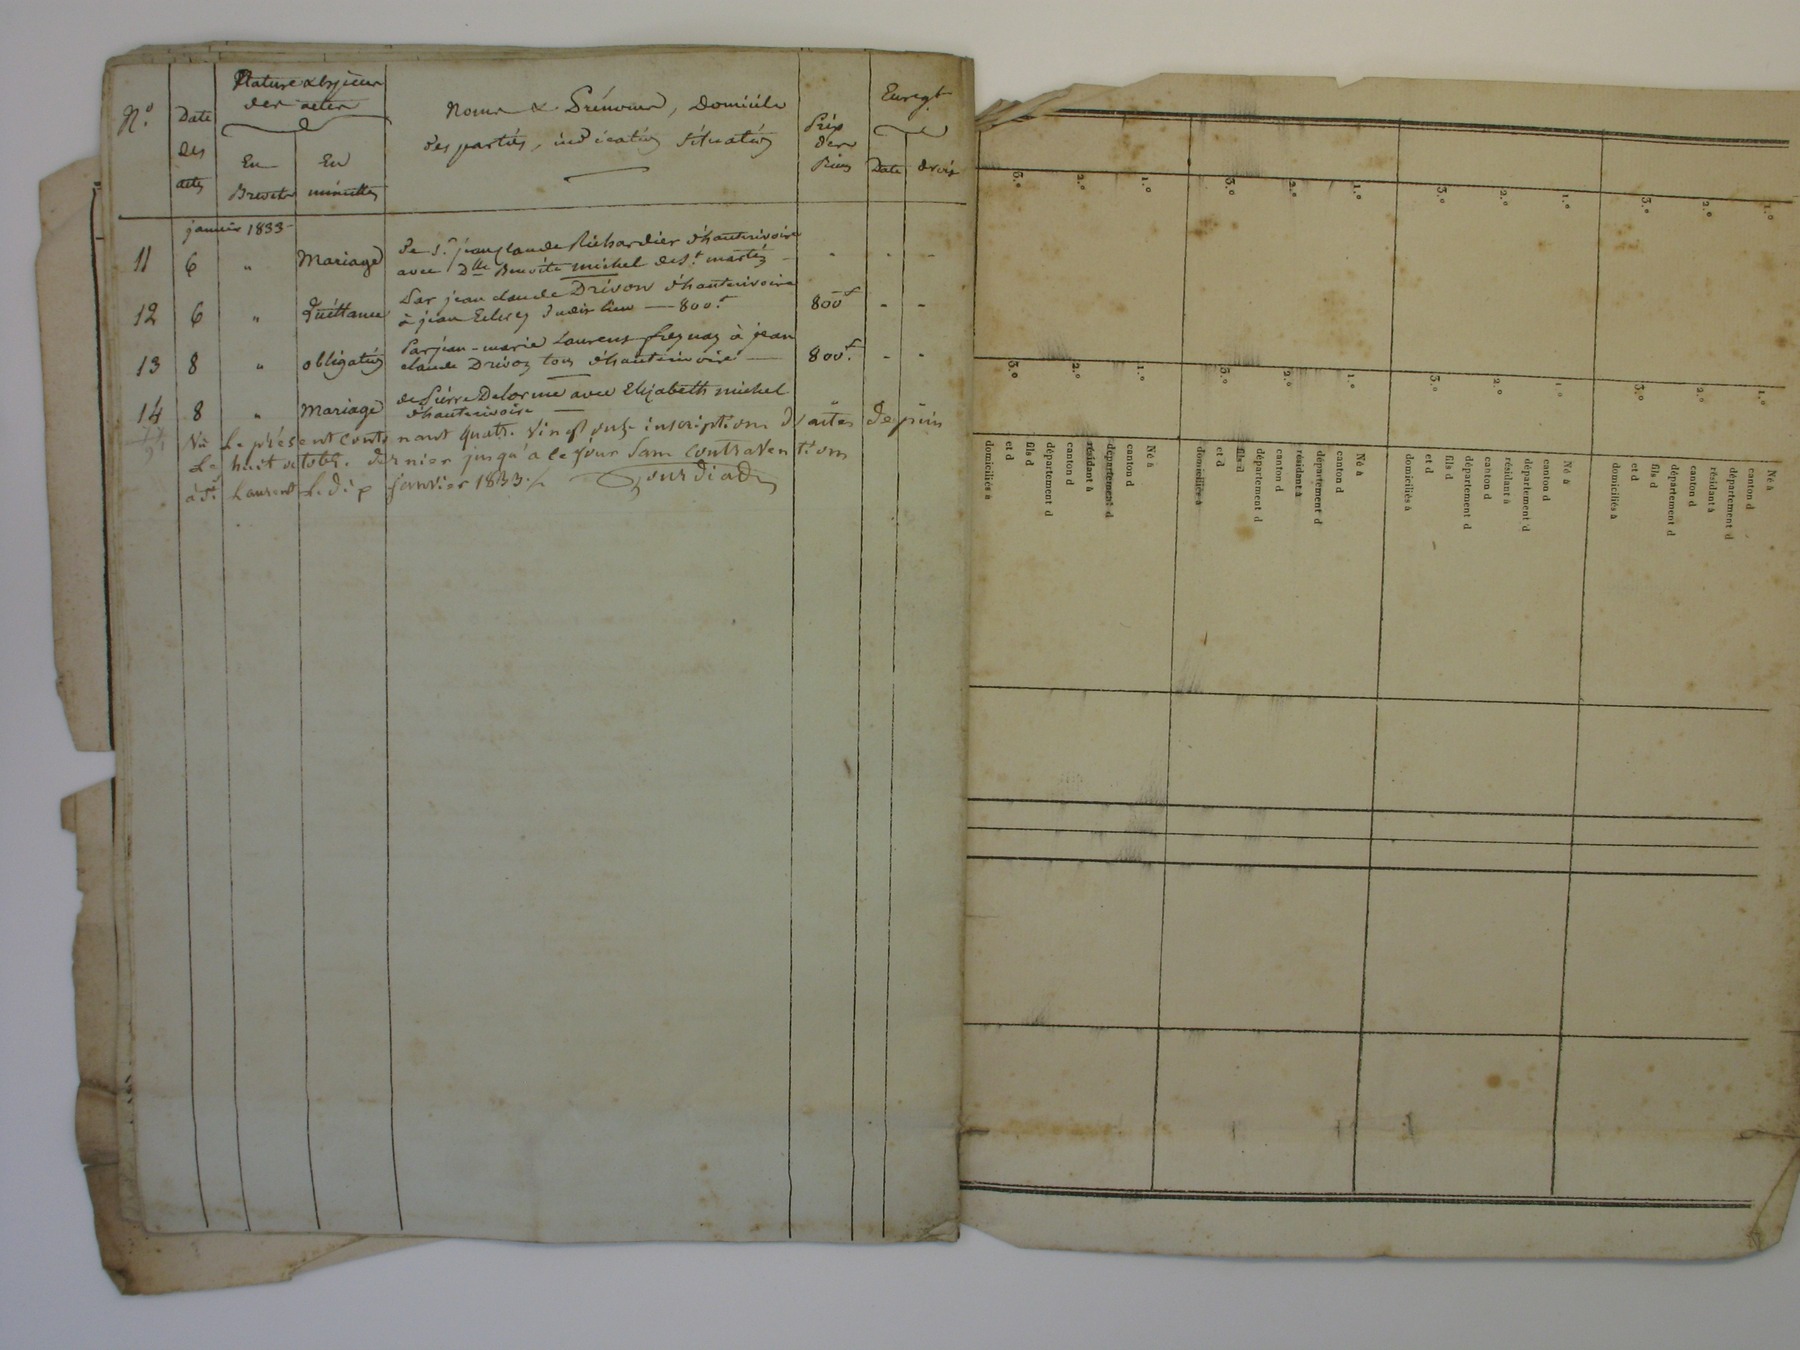 N.o
Date
des
actes
Nature & espèces
des actes
En
Brevets
En
minuttes
Noms & Prénoms, Domicile
des parties, indication Situation
Prix
des
Biens
Enregt
Date
droits
janvier 1833
11 6 " Mariage de S.r jean claude Richardier d'hauterivoire
avec Dlle Benoite michel de St martin - - -
12 6 " Quittance Par jean claude Drivon d'hauterivoire
à jean dudit lieu — 800.f 800f - -
13 8 " obligation Par jean-marie Laurens à jean
claude Drivon tous d'hauterivoire — 800f. - -
14 8 " Mariage de Pierre Delorme avec Elizabeth michel
d'hauterivoire — " " "
Vu Le présent contenant quatre vingt onze inscriptions d'actes depuis
Le huit octobre dernier jusqu'à ce jour Sans Contraventions
à St. Laurent Le dix janvier 1833
3.o 2.o 1.o 3.o 2.o 1.o 3.o 2.o 1.o 3.o 2.o 1.o
3.o 2.o 1.o 3.o 2.o 1.o 3.o 2.o 1.o 3.o 2.o 1.o
Né à
canton d
département d
résidant à
canton d
département d
fils d
et d
domiciliés à
Né à
canton d
département d
résidant à
canton d
département d
fils d
et d
domiciliés à
Né à
canton d
département d
résidant à
canton d
département d
fils d
et d
domiciliés à
Né à
canton d
département d
résidant à
canton d
département d
fils d
et d
domiciliés à